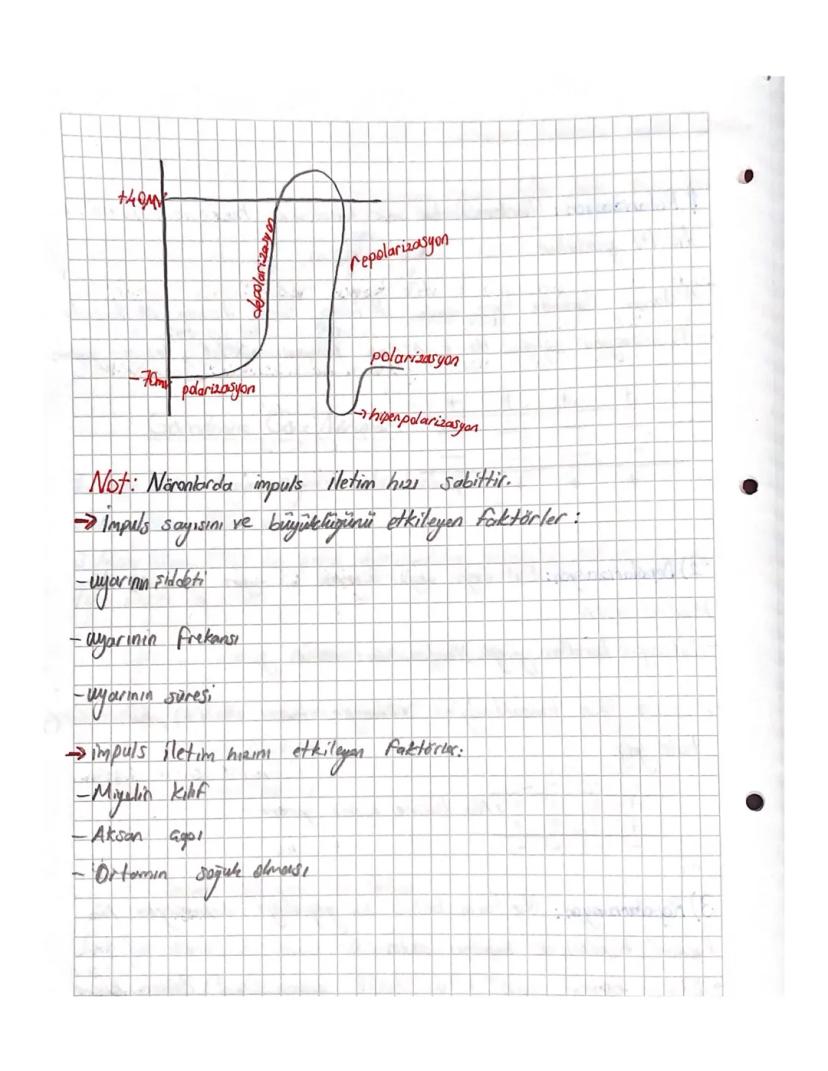 +40mV
depolarizasyon
repolarizasyon
polarizasyon
-70mv
polarizasyon
→ hiperpolarizasyon
Not: Nöronlarda impuls iletim hızı sabittir.
→ İmpuls sayısını ve büyüklüğünü etkileyen faktörler:
- uyarının şiddeti
- uyarının frekansı
- uyarının süresi
→ impuls iletim hızını etkileyen faktörler:
- Miyelin kılıf
- Akson çapı
- Ortamın soğuk olması